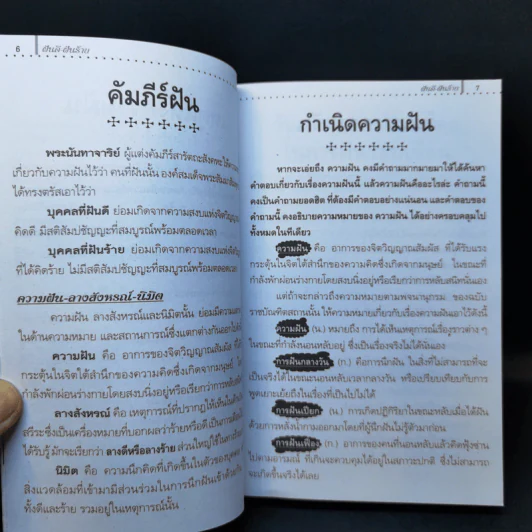 6 ฝันดี-ฝันร้าย
คัมภีร์ฝัน
พระนันทาจารีย์ ผู้แต่งคัมภีร์สารัตถะสังคหะ ได้
เกี่ยวกับความฝันไว้ว่า คนที่ฝันนั้น องค์สมเด็จพระสัมมา
ได้ทรงตรัสเอาไว้ว่า
บุคคลที่ฝันดี ย่อมเกิดจากความสงบแห่งจิตวิญญาณ
คิดดี มีสติสัมปชัญญะที่สมบูรณ์พร้อมตลอดเวลา
บุคคลที่ฝันร้าย ย่อมเกิดจากความสงบแห่ง
ที่ได้คิดร้าย ไม่มีสติสัมปชัญญะที่สมบูรณ์พร้อมตลอด
ความฝัน-ลางสังหรณ์-นิมิต
ความฝัน ลางสังหรณ์และนิมิตนั้น ย่อมมีความ
ในด้านความหมาย และสถานการณ์ซึ่งแตกต่างกันออกไป
ความฝัน คือ อาการของจิตวิญญาณสัมผัส ที่
กระตุ้นในจิตใต้สำนึกของความคิดซึ่งเกิดจากมนุษย์ ใน
กำลังพักผ่อนร่างกายโดยสงบนิ่งอยู่หรือเรียกว่าการหลับ
ลางสังหรณ์ คือ เหตุการณ์ที่ปรากฏให้เห็นใน
สรีระซึ่งเป็นเครื่องหมายที่บอกผลว่าร้ายหรือดี เป็นการ
ได้รับรู้ มักจะเรียกว่า ลางดีหรือลางร้าย ส่วนใหญ่ใช้ใน
นิมิต คือ ความนึกคิดที่เกิดขึ้นในตัวของ
สิ่งแวดล้อมที่เข้ามามีส่วนร่วมในการนึกฝัน
ทั้งดีและร้าย รวมอยู่ในเหตุการณ์นั้น
ฝันดี-ฝันร้าย 7
กำเนิดความฝัน
หากจะเอ่ยถึง ความฝัน คงมีคำถามมากมายมาให้ได้ค้นหา
คำตอบเกี่ยวกับเรื่องความฝันนี้ แล้วความฝันคืออะไรล่ะ คำถามนี้
คงเป็นคำถามยอดฮิต ที่ต้องมีคำตอบอย่างแน่นอน และคำตอบของ
คำถามนี้ คงอธิบายความหมายของ ความฝัน ได้อย่างครอบคลุมไป
ทั้งหมดในทีเดียว
ความฝัน คือ อาการของจิตวิญญาณสัมผัส ที่ได้รับแรง
กระตุ้นในจิตใต้สำนึกของความคิดซึ่งเกิดจากมนุษย์ ในขณะที่
กำลังพักผ่อนร่างกายโดยสงบนิ่งอยู่หรือเรียกว่าการหลับสนิทนั่นเอง
แต่ถ้าจะกล่าวถึงความหมายตามพจนานุกรม ของฉบับ
ราชบัณฑิตสถานนั้น ให้ความหมายเกี่ยวกับเรื่องความฝันเอาไว้ดังนี้
ความฝัน (น.) หมายถึง การได้เห็นเหตุการณ์เรื่องราวต่าง ๆ
ในขณะที่กำลังนอนหลับอยู่ ซึ่งเป็นเรื่องจริงไม่ได้นั่นเอง
การฝันกลางวัน (ก.) คือการนึกฝัน ในสิ่งที่ไม่สามารถที่จะ
เป็นจริงได้ในขณะนอนหลับเวลากลางวัน หรือเปรียบเทียบกับการ
พูดเยาะเย้ยถึงในเรื่องที่เป็นไปไม่ได้
การฝันเปียก (ก.) การเกิดปฏิกิริยาในขณะหลับเมื่อได้ฝัน
ด้วยการหลั่งน้ำกามออกมาโดยที่ผู้นึกฝันไม่รู้ตัวมาก่อน
การฝันเฟื่อง (ก.) อาการของคนที่นอนหลับแล้วคิดฟุ้งซ่าน
ไปตามอารมณ์ ที่เกินจะควบคุมได้อยู่ในสภาวะปกติ ซึ่งไม่สามารถ
จะเกิดขึ้นจริงได้เลย